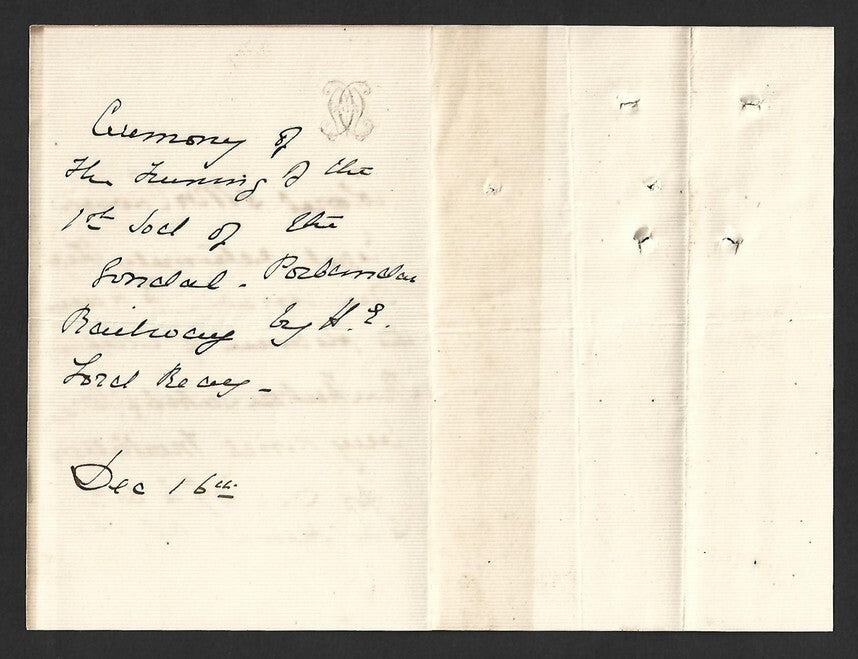 Ceremony of
the Turning of the
1st Sod of the
Gondal - Porbandar
Railway by H.E.
Lord Reay -
Dec 16th